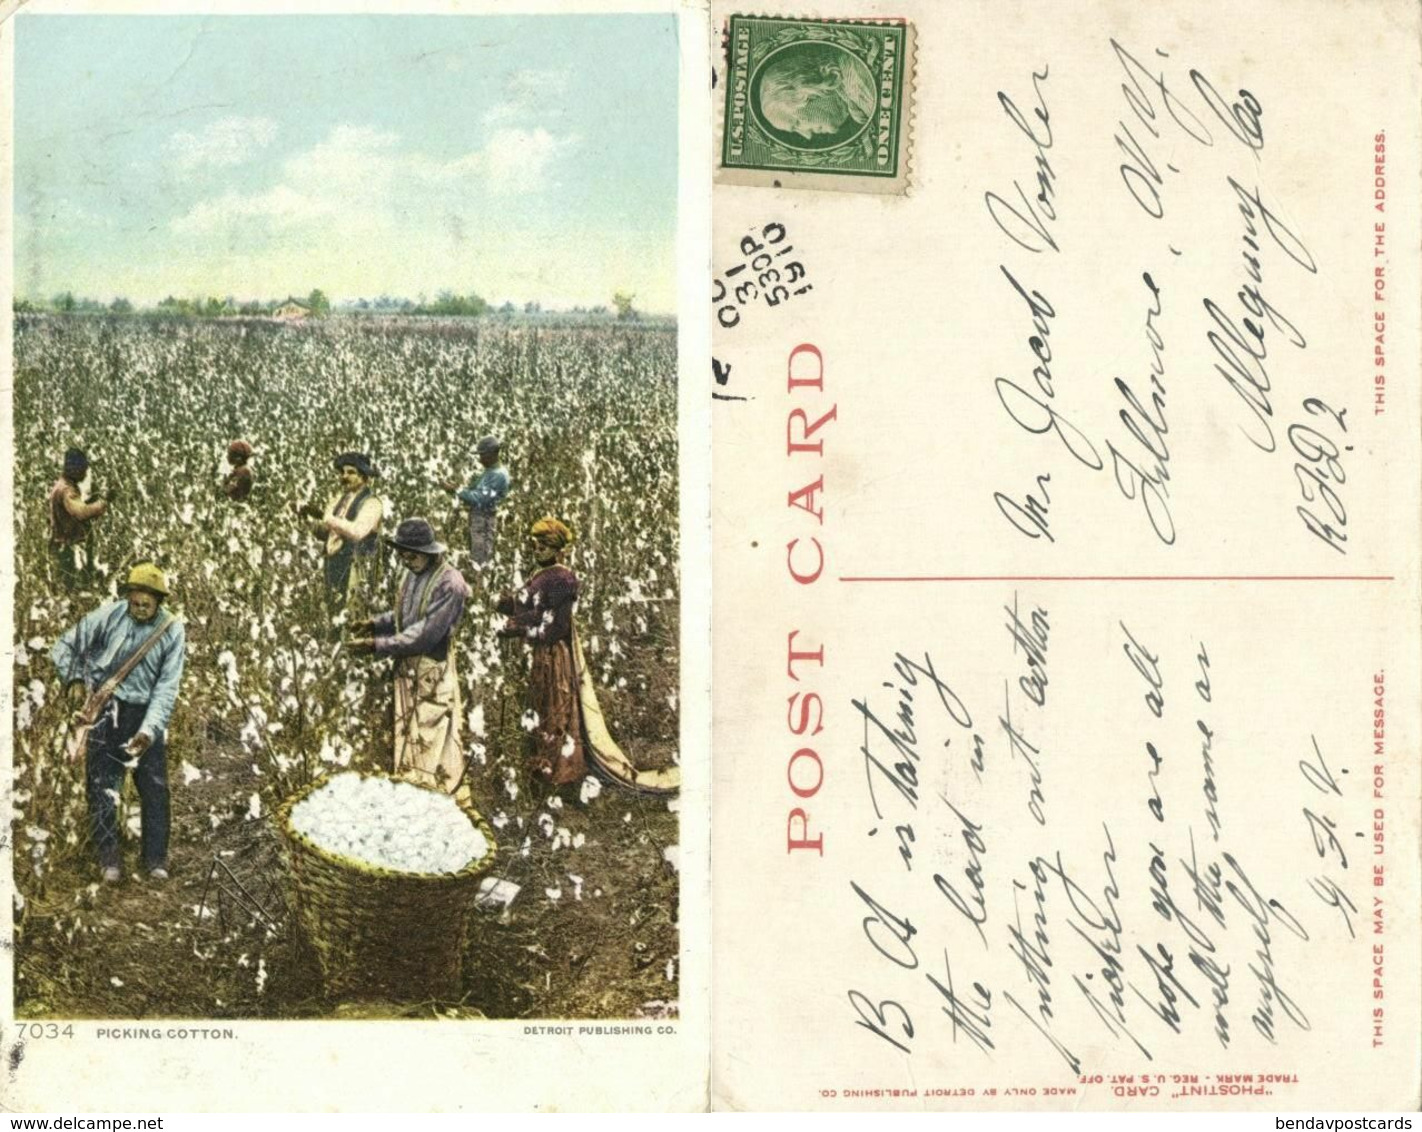 7034 PICKING COTTON.
DETROIT PUBLISHING CO.
U.S. POSTAGE
ONE CENT
OCT
31
530P
1910
POST CARD
B A is taking
the lead in
putting out cotton
pickers
hope you are all
well the same as
myself
G. F. V.
Mr Jacob Vosler
Fillmore, N.Y.
Allegany Co
RFD. 2
THIS SPACE FOR THE ADDRESS.
THIS SPACE MAY BE USED FOR MESSAGE.
"PHOSTINT" CARD. MADE ONLY BY DETROIT PUBLISHING CO.
TRADE MARK - REG. U. S. PAT. OFF.
www.delcampe.net
bendavpostcards